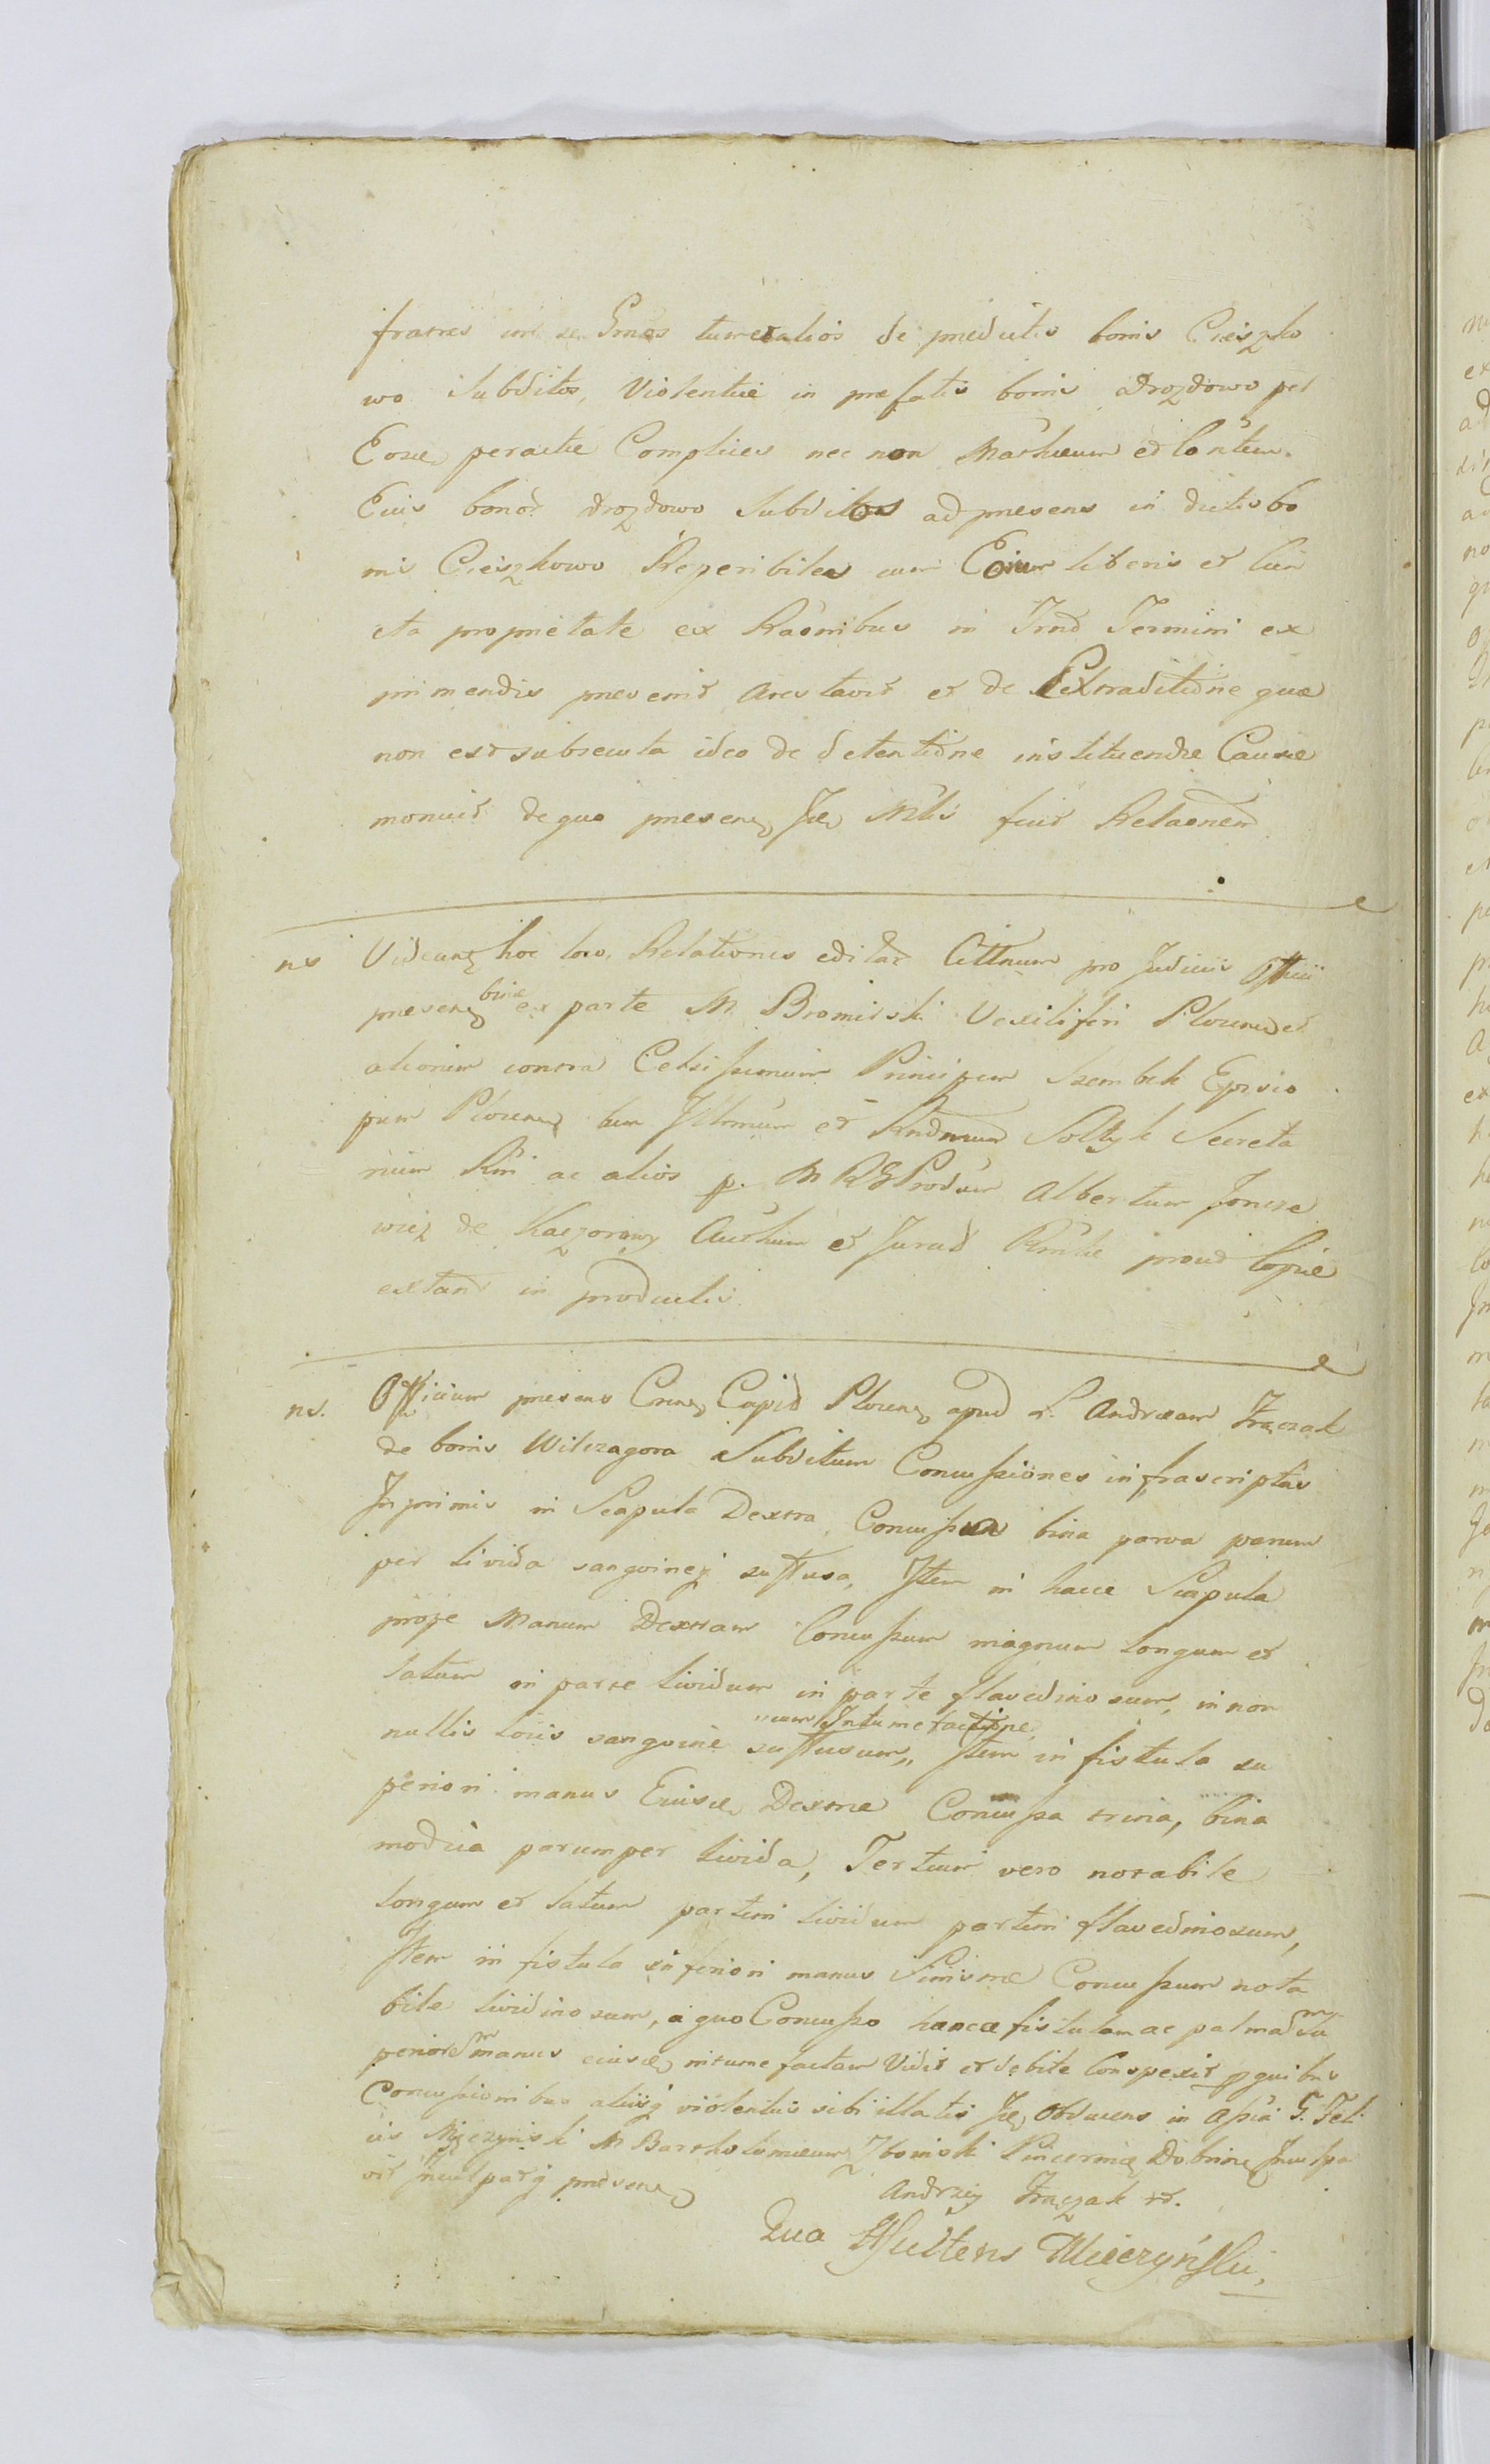 fratres inter se Gnos tum et alios de predictis bonis Cieszko
wo Subditos, Violentiæ in præfatis bonis Drozdowo per
Eosd peractæ Complices nec non Mathæum et Contem.
Eius bonor Drozdowo Subditos ad presens in dictis bo
nis Cieszkowo Reperibiles cum Eorum liberis et cun
cta proprietate ex Raõnibus in Trno Termini ex
primendis prevenit Arestavit et de Extraditione quæ
non est subsecuta ideo de detentione instituendæ Causæ
monuit de quo presens Id Mtis fecit Relaõnem
ns Videant hoc loco Relationes editar Cittnum pro Judiciis Officii
presens binæ ex parte M. Bromirski Vexiliferi Plocens et
aliorum contra Celsissimum Principem Szembek Episco
pum Plocens tum Illmum et Rndmum Soltyk Secreta
rium Rni ac alios p. M R G Prodm Albertum Joncze
wicz de Kaczorowy Authum et Jurat Rmth prout Copiæ
extant in productis.
ns. Officium presens Crens Capit Plocens apud L. Andræam Frączak
de bonis Wilczagora Subditum Concussiones infrascriptas
Inprimis in Scapula Dextra Concussa bina parva parum
per livida sanguineq suffusa, Item in hacce Scapula
prope Manum Dextram Concussum magnum longum et
latum in parte lividum in parte flavedinosum, in non
nullis locis sanguine suffusum,, cum Intumefactione Item in fistula su
periori manus Eiusd Dextræ Concussa trina, bina
modica parumper livida, Tertium vero notabile
longum et latum partim lividum partim flavedinosum,
Item in fistula inferiori manus Sinistræ Concussum nota
bile lividinosum, a quo Concusso hancce fistulam ac palmam su
periorem manus eiusd intumefactam Vidit et debite Conspexit p quibus
Concussionibus aliisq violentiis sibi illatis Id Obducens in Assia G. Feli
cis Mięczyński M Bartholomæum Zboinski Pincernæ Dobrinens Incusa
vit Inculpatq presens
Andrzey Frączak et.
Qua Assistens Mieczyński,